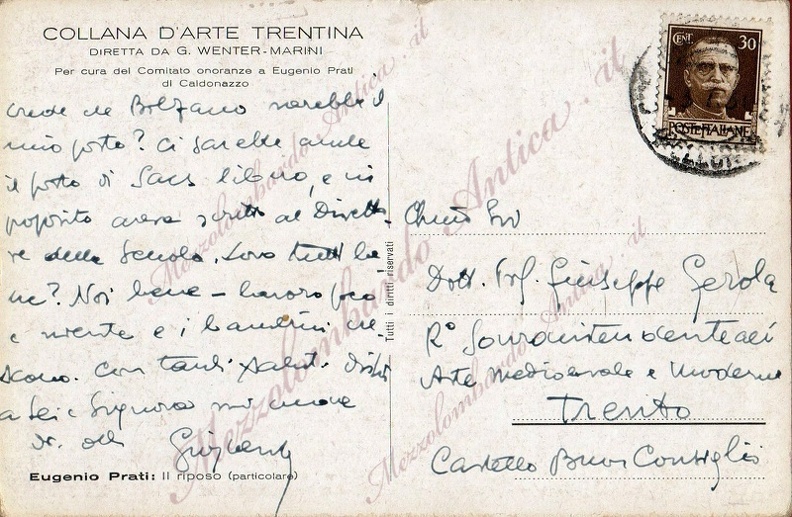 COLLANA D'ARTE TRENTINA
DIRETTA DA G. WENTER-MARINI
Per cura del Comitato onoranze a Eugenio Prati
di Caldonazzo
crede che Bolzano sarebbe il
mio posto? Ci sarebbe anche
il posto di libero, e in
proposito avevo scritto al Diretto-
re della Scuola. Loro tutti be-
ne? Noi bene - lavoro poco
e niente e i bambini cre-
scono. Con tanti saluti distinti
a Lei e Signora mi creda
Eugenio Prati: Il riposo (particolare)
Tutti i diritti riservati
CENT 30
POSTE ITALIANE
Chmo Sig
Dott. Prof. Giuseppe Gerola
Ro Sovraintendente all'
Arte Medioevale e Moderna
Trento
Castello Buon Consiglio
Mezzolombardo Antica . it
Mezzolombardo Antica . it
Mezzolombardo Antica . it